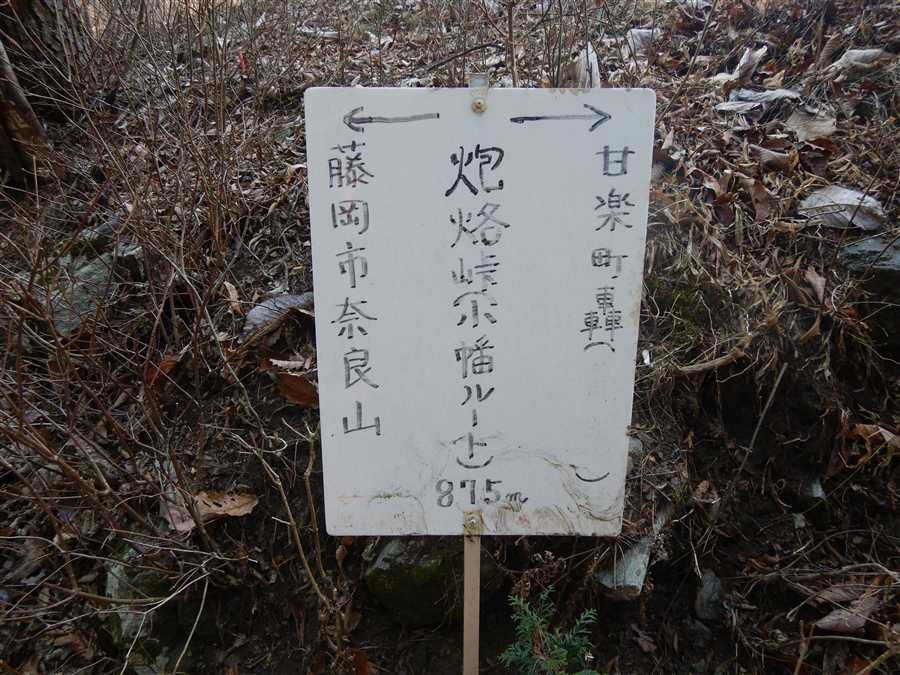 →
甘楽町轟(　　)
炮烙峠(小幡ルート)
875m
←
藤岡市奈良山